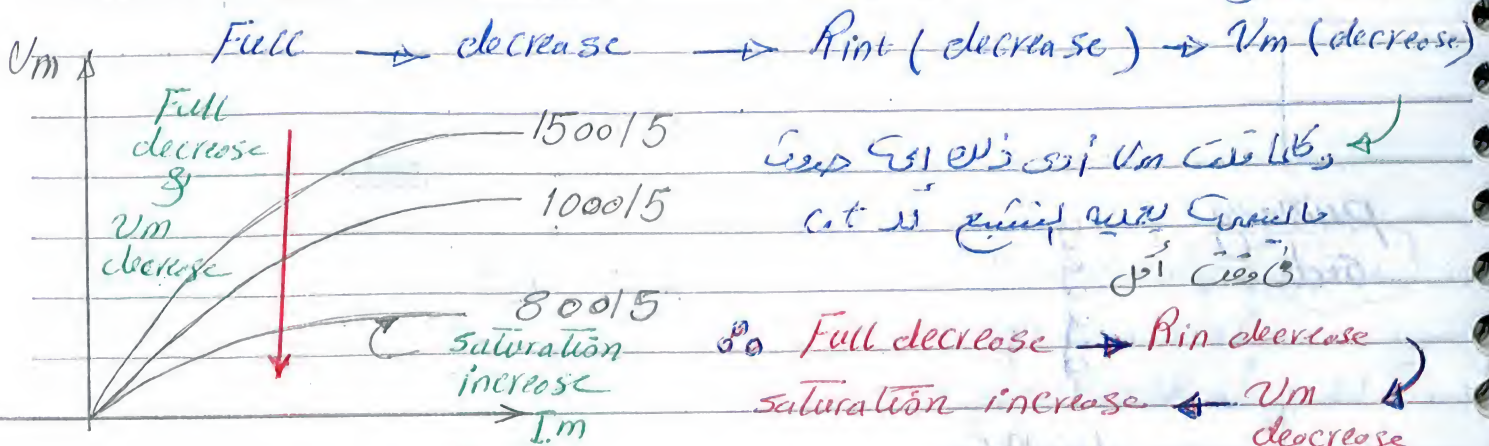 Full → decrease → Rint (decrease) → Vm (decrease)
Vm
Full
decrease
&
Vm
decrease
1500/5
1000/5
800/5
saturation
increase
I.m
وكلما قلت Vm أدى ذلك إلى حدوث
ما يسمى بعملية لتشبع لل c.t
في وقت أقل
∴ Full decrease → Rin decrease
saturation increase ← Vm
decrease